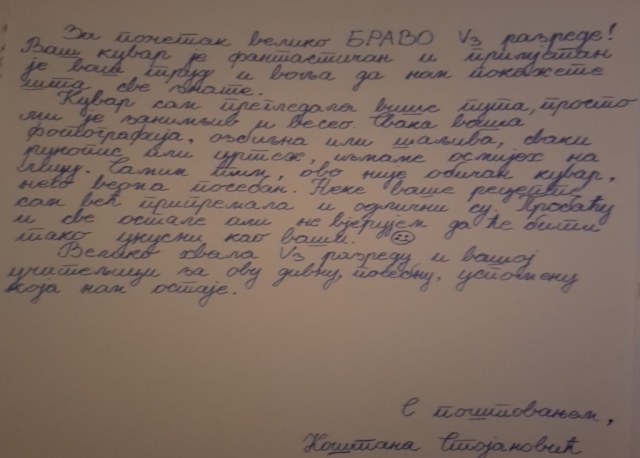 За почетак велико БРАВО V3 разреде!
Ваш кувар је фантастичан и примјетан
је ваш труд и воља да нам покажете
шта све знате.
Кувар сам прегледала више пута, просто
ми је занимљив и весео. Свака ваша
фотографија, озбиљна или шаљива, сваки
рукопис или цртеж, измаме осмијех на
лицу. Самим тим, ово није обичан кувар,
него веома посебан. Неке ваше рецепте
сам већ припремала и одлични су. Пробаћу
и све остале али не вјерујем да ће бити
тако укусни као ваши. ☺
Велико хвала V3 разреду и вашој
учитељици за ову дивну, посебну, успомену
која нам остаје.
С поштовањем,
Коштана Стојановић